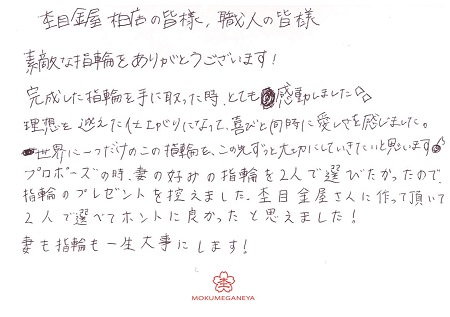 杢目金屋 柏店の皆様、職人の皆様
素敵な指輪をありがとうございます！
完成した指輪を手に取った時、とても感動しました
理想を超えた仕上がりになって、喜びと同時に愛しさを感じました。
世界に一つだけのこの指輪を、この先ずっと大切にしていきたいと思います
プロポーズの時、妻の好みの指輪を2人で選びたかったので、
指輪のプレゼントを控えました。杢目金屋さんに作って頂いて
2人で選べてホントに良かったと思えました！
妻も指輪も一生大事にします！
MOKUMEGANEYA